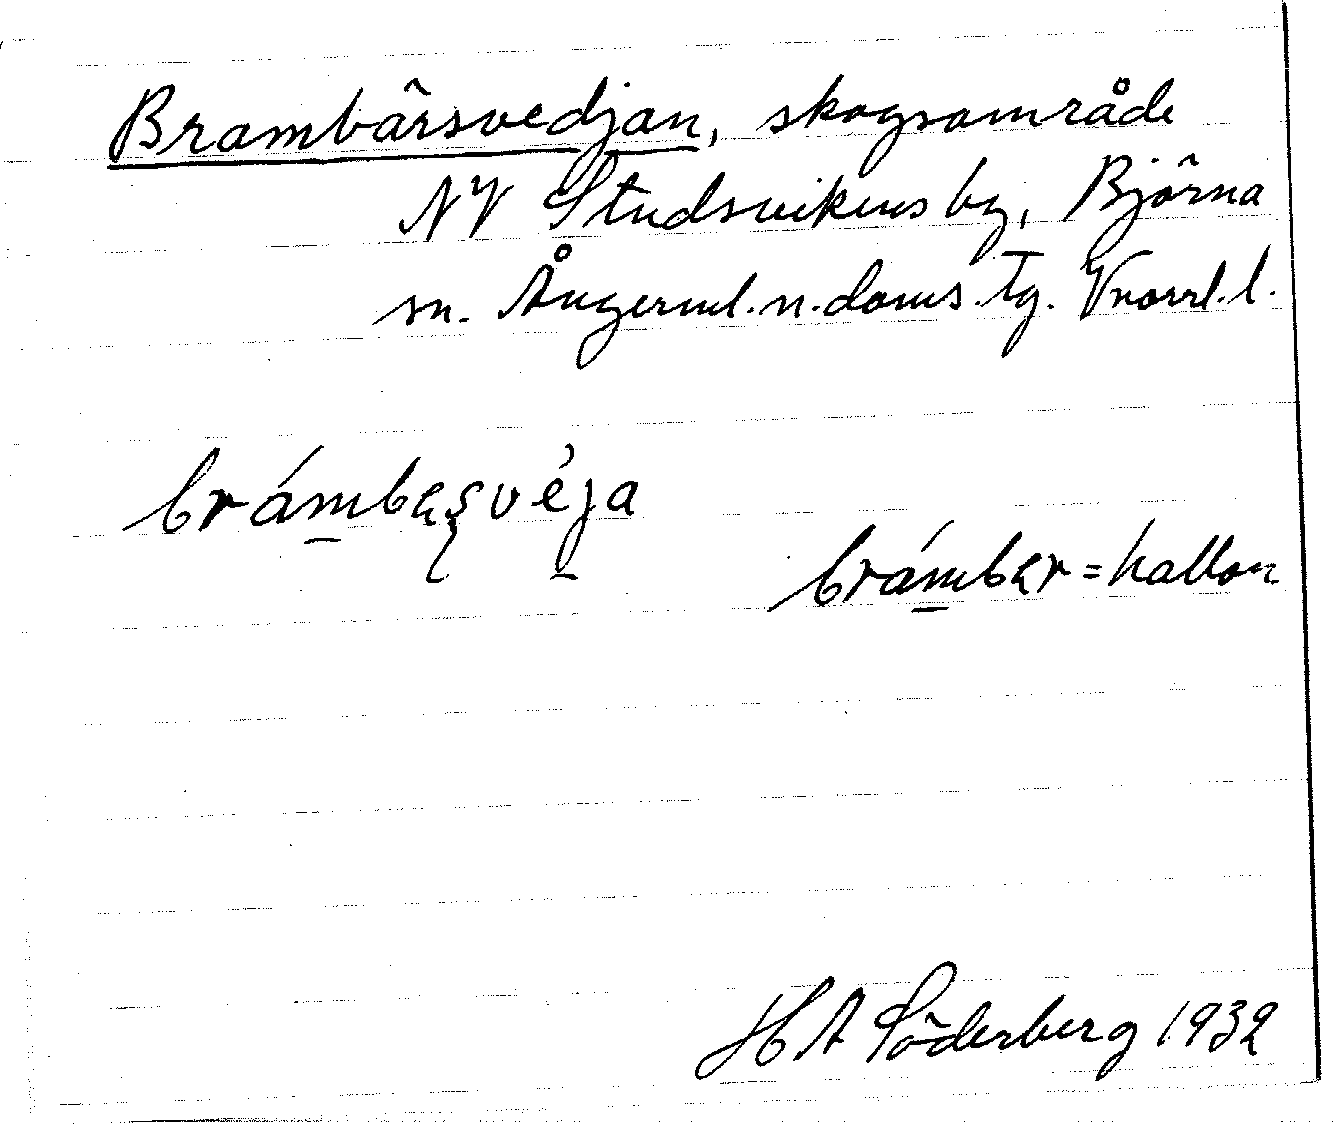 Brambärsvedjan, skogsområde
NV Studsvikens by, Björna
sn. Ångerml. n. doms. tg. Vnorrl. l.
brámbęṣvéja
brámbęr = hallon
H A Söderberg 1932